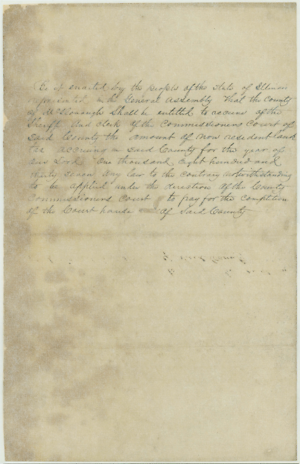 Be it enacted by the people of the state of Illinois
represented in the General Assembly That the County
of McDonough Shall be entitled to receive of the
Sheriff and clerk of the Commissioners Court of
Said County the amount of non resident land
tax accruing in Said County for the year of
our Lord One thousand eight hundred and
thirty seven any law to the contrary notwithstanding
to be applied under the direction of the County
Commissioners Court to pay for the completion
of the Court house of Said County